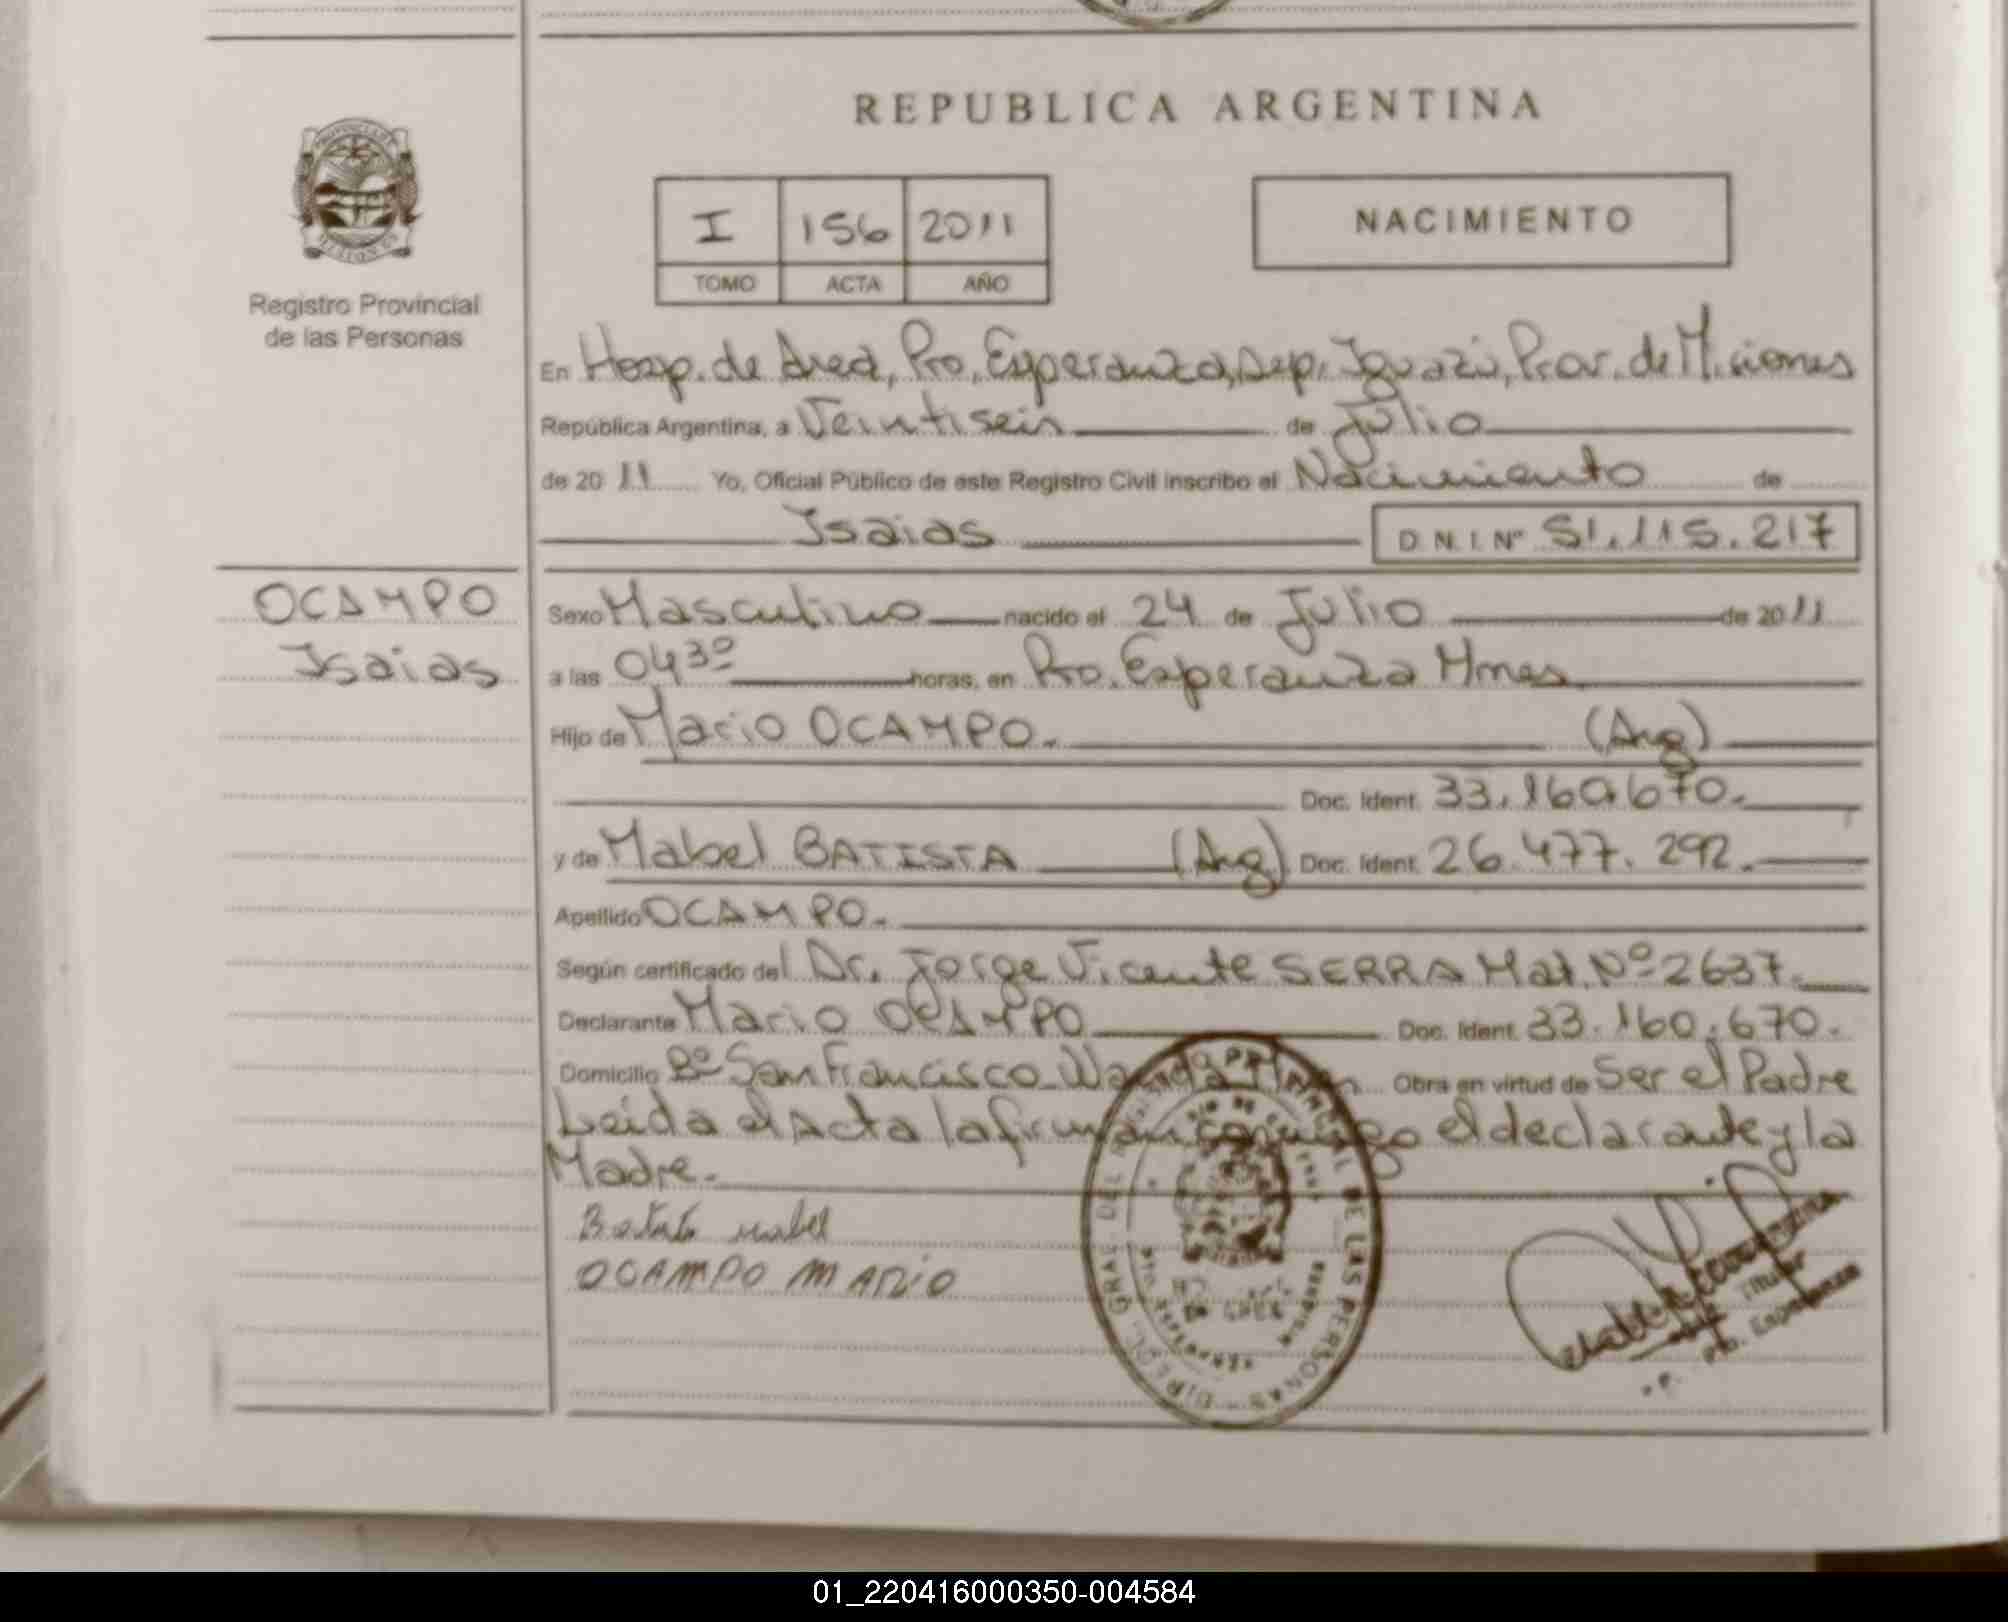 REPUBLICA ARGENTINA
I 156 2011
TOMO ACTA AÑO
NACIMIENTO
Registro Provincial
de las Personas
En Hosp. de Area, Pto. Esperanza, Dep. Iguazú, Prov. de Misiones
República Argentina, a Veintiseis de Julio
de 2011 Yo, Oficial Público de este Registro Civil inscribo el Nacimiento de
Isaias D.N.I. Nº 51.115.217
OCAMPO
Isaias
Sexo Masculino nacido el 24 de Julio de 2011
a las 0430 horas, en Pto. Esperanza Mnes
Hijo de Mario OCAMPO. (Arg)
Doc. Ident. 33.160.670.
y de Mabel BATISTA (Arg) Doc. Ident. 26.477.292.
Apellido OCAMPO.
Según certificado del Dr. Jorge Vicente SERRA Mat. Nº 2637.
Declarante Mario OCAMPO Doc. Ident. 33.160.670.
Domicilio Bº San Francisco Wanda Obra en virtud de Ser el Padre
Leida el Acta la firman conmigo el declarante y la
Madre.
mabel
OCAMPO MARIO
DIRECC. GRAL. DEL PROVINCIAL DE LAS PERSONAS
Titular
Pto. Esperanza
01_220416000350-004584